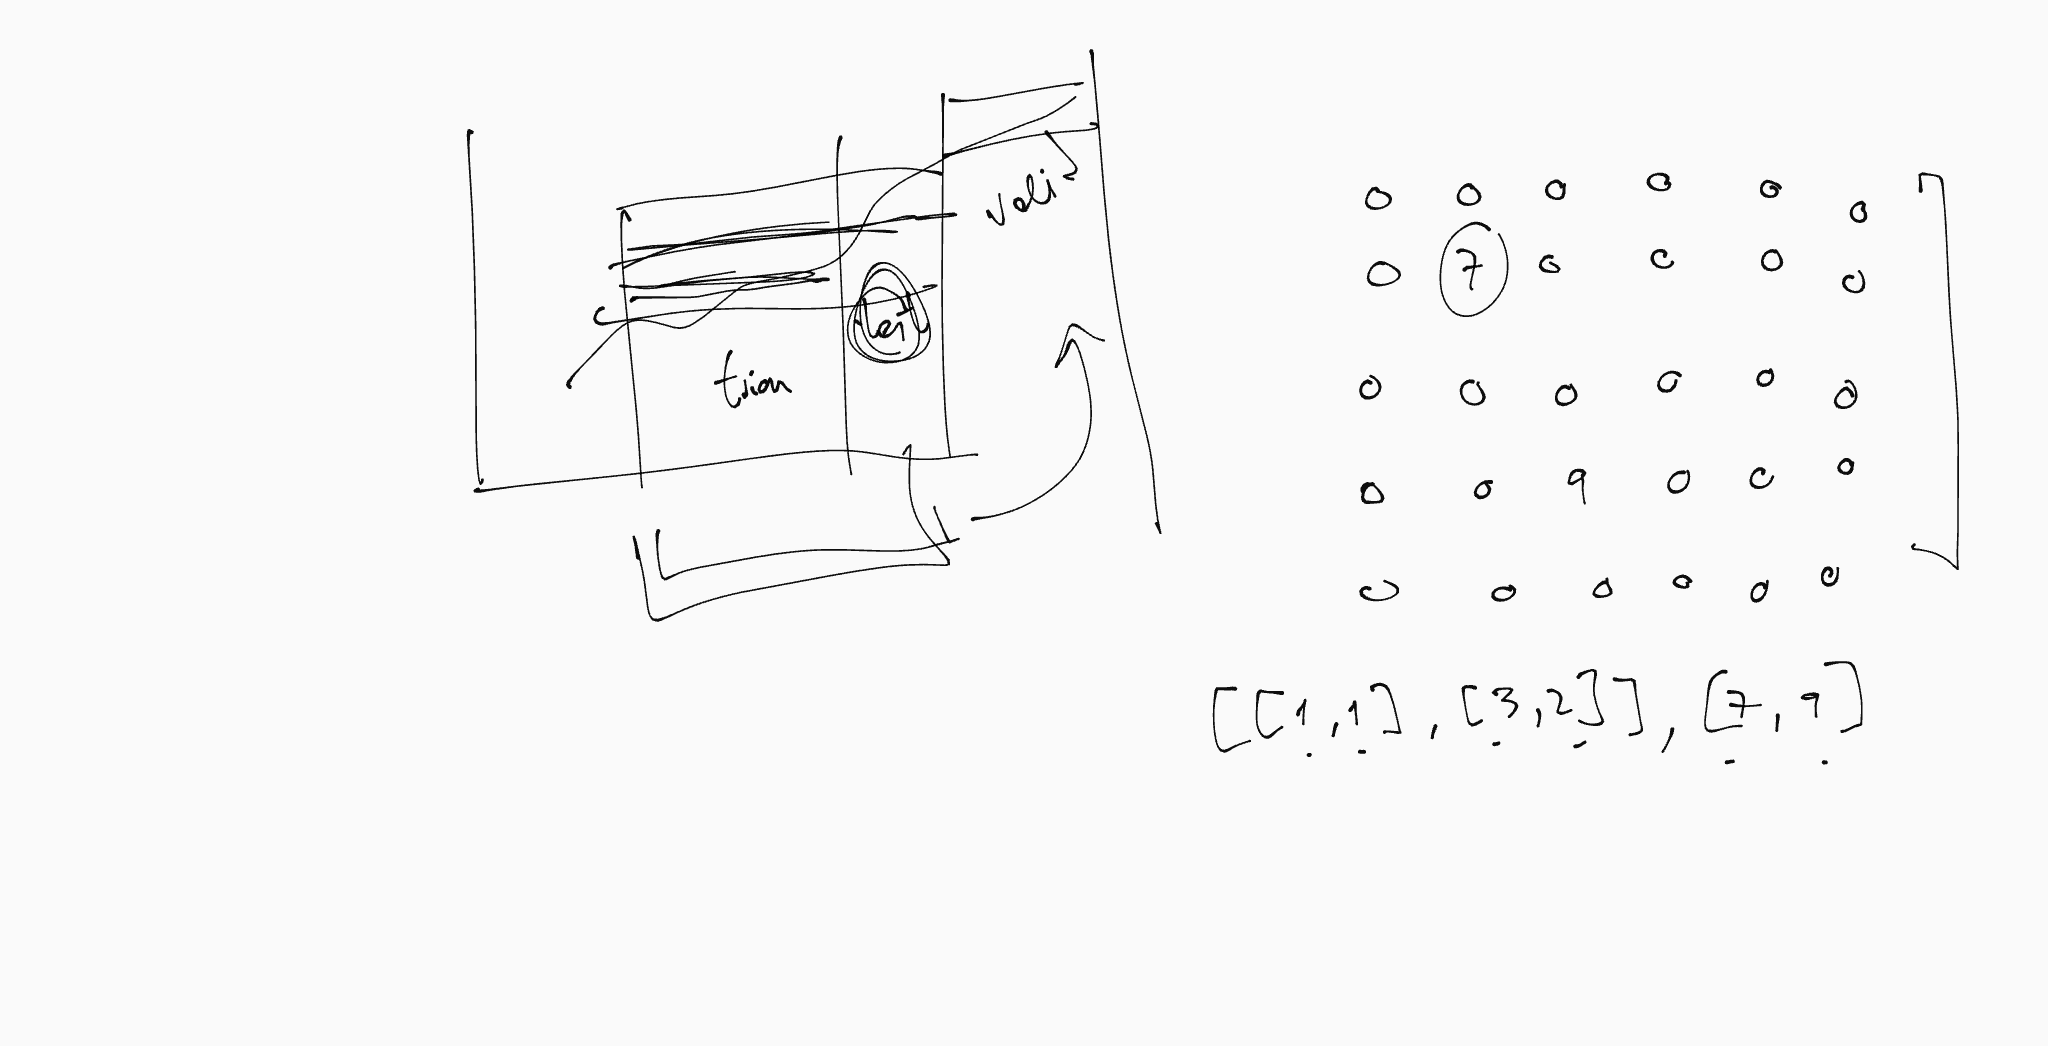 vali
test
train
0 0 0 0 0 0
0 7 0 0 0 0
0 0 0 0 0 0
0 0 9 0 0 0
0 0 0 0 0 0
[[1,1],[3,2]],[7,9]